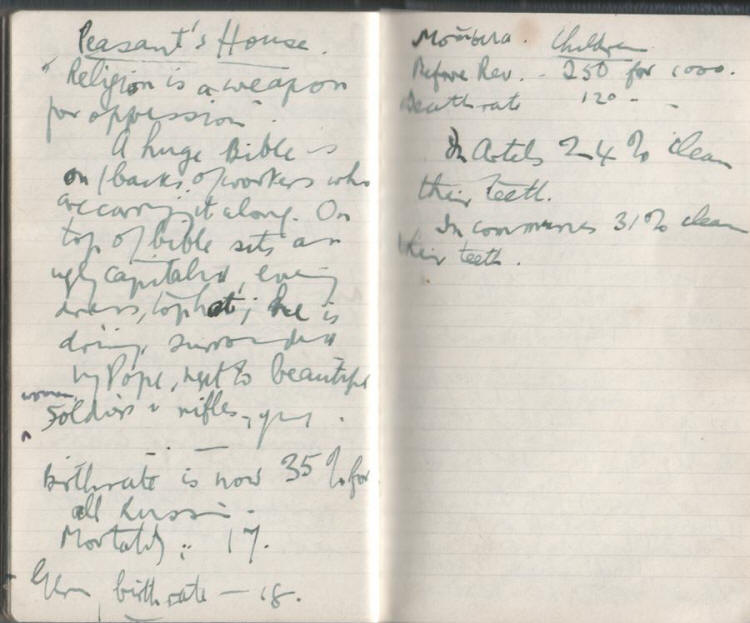 Peasant's House.
"Religion is a weapon
for oppression".
A huge Bible is
on / backs of workers who
are carrying it along. On
top of bible sits an
ugly capitalist, evening
dress, top hat; he is
driving, surrounded
by Pope, next to beautiful
women
Soldiers & rifles,
Birthrate is now 35% for
all Russia.
Mortality " 17.
Germ birthrate — 18.
Children
Before Rev. - 250 for 1000.
Deathrate 120 - -
In Artels 24% clean
their teeth.
In communes 31% clean
their teeth.